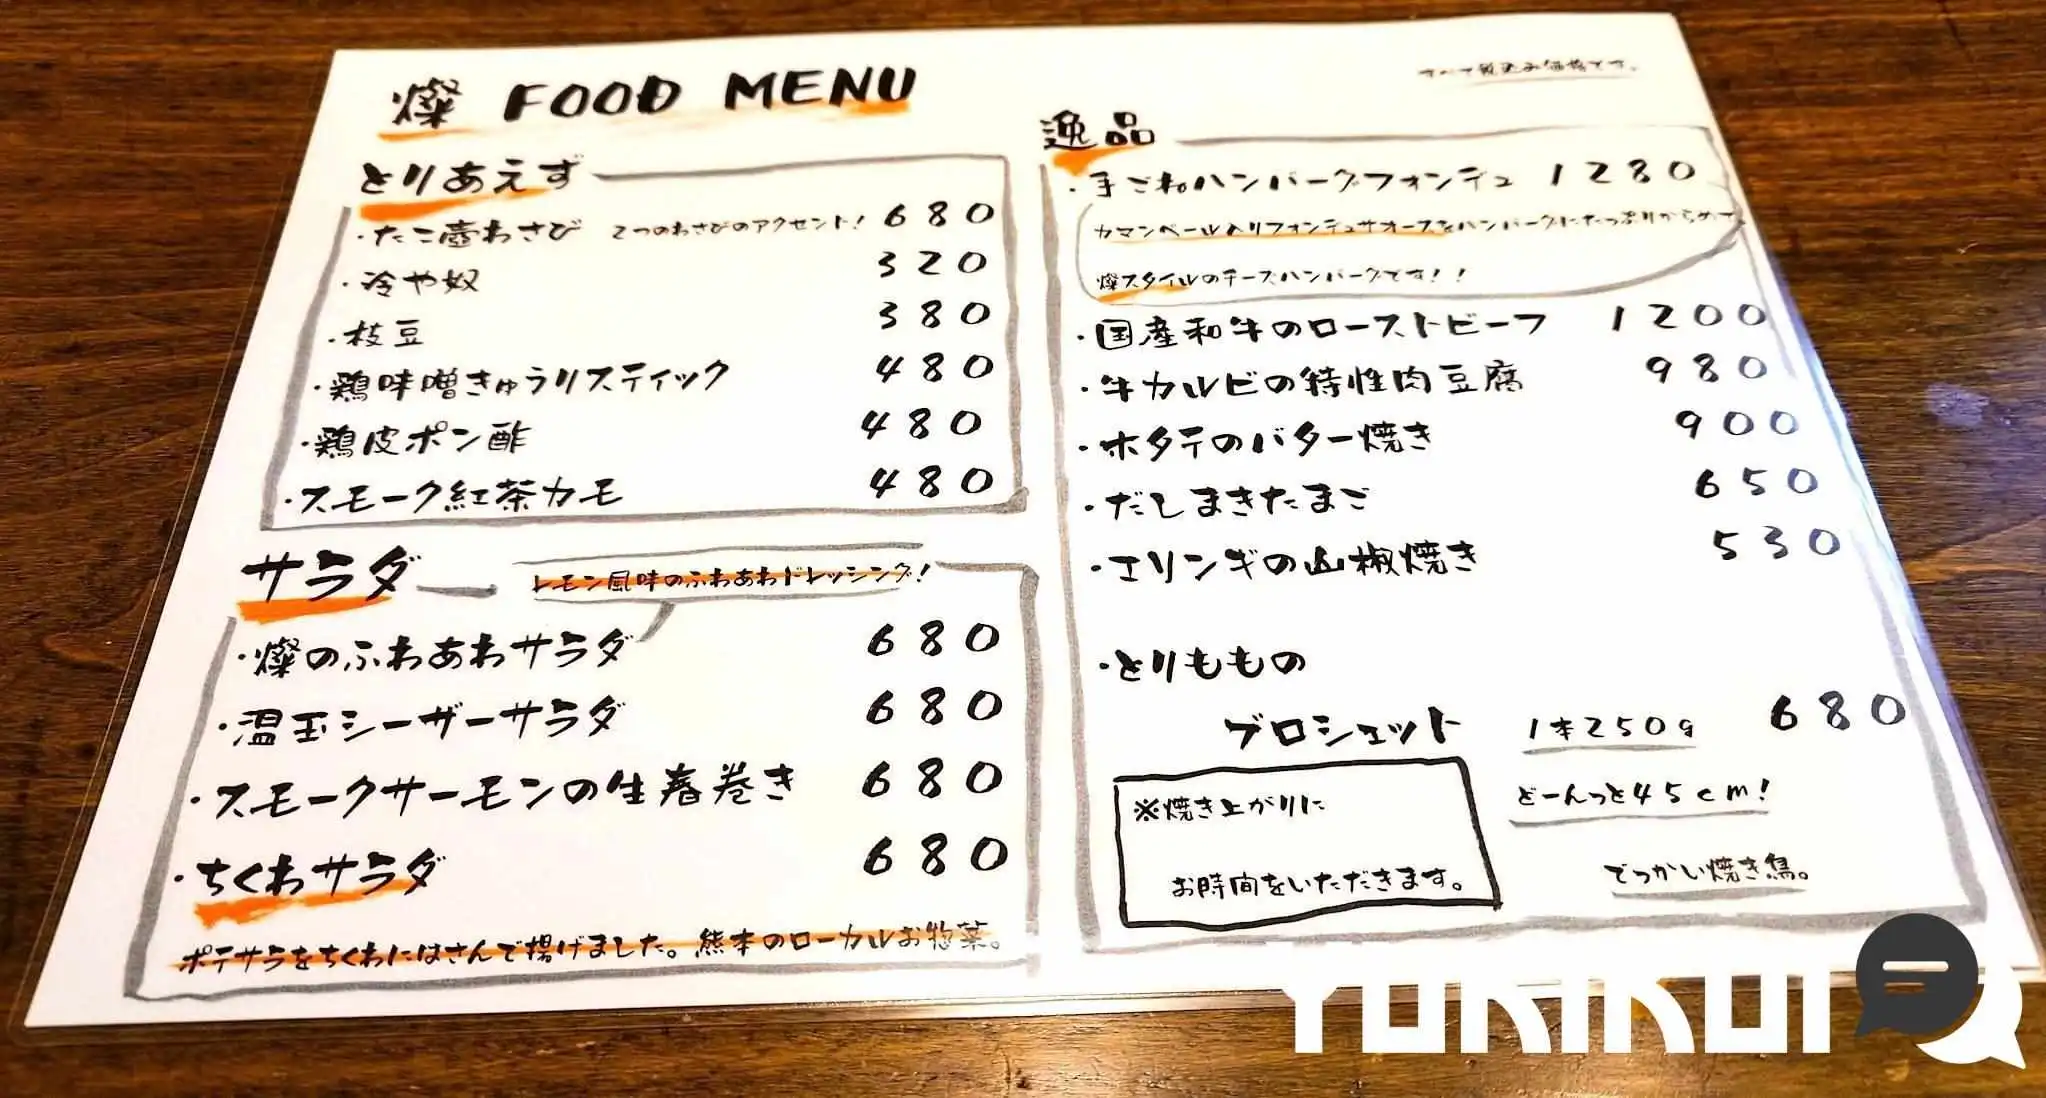 燦 FOOD MENU
すべて税込み価格です。
とりあえず
・たこ壺わさび 2つのわさびのアクセント! 680
・冷や奴 320
・枝豆 380
・鶏味噌きゅうりスティック 480
・鶏皮ポン酢 480
・スモーク紅茶カモ 480
サラダ
レモン風味のふわあわドレッシング!
・燦のふわあわサラダ 680
・温玉シーザーサラダ 680
・スモークサーモンの生春巻き 680
・ちくわサラダ 680
ポテサラをちくわにはさんで揚げました。熊本のローカルお惣菜。
逸品
・手ごねハンバーグフォンデュ 1280
カマンベール入りフォンデュサオースをハンバーグにたっぷりからめて、
燦スタイルのチーズハンバーグです!!
・国産和牛のローストビーフ 1200
・牛カルビの特性肉豆腐 980
・ホタテのバター焼き 900
・だしまきたまご 650
・エリンギの山椒焼き 530
・とりももの
ブロシェット 1本250g 680
どーんっと45cm!
でっかい焼き鳥。
※焼き上がりに
お時間をいただきます。
YORIKOI